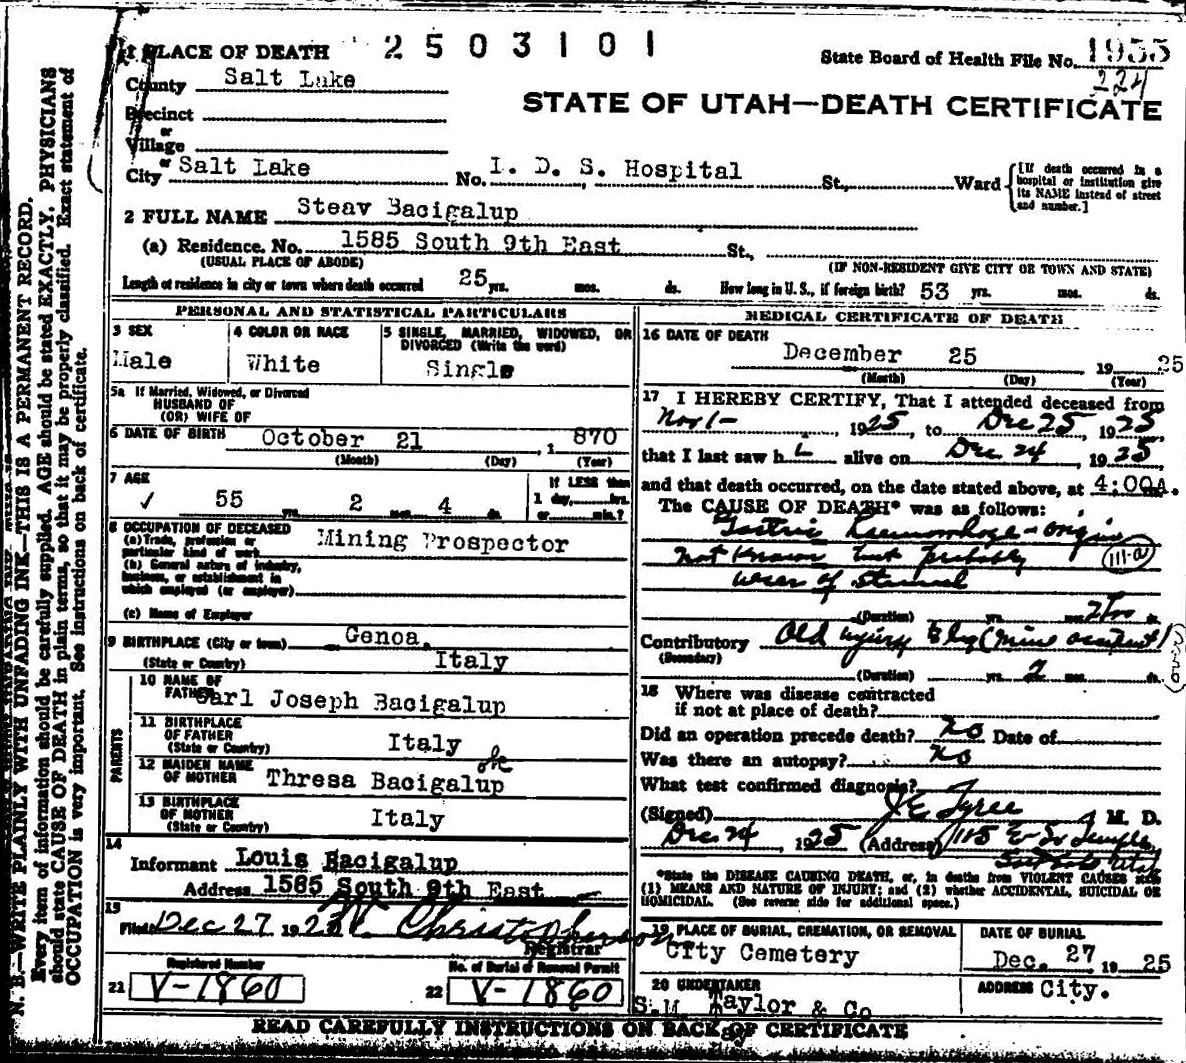 1 PLACE OF DEATH 2503101
State Board of Health File No. 1955
224
County Salt Lake
STATE OF UTAH—DEATH CERTIFICATE
Precinct
or
Village
or
City Salt Lake No. I. D. S. Hospital St., Ward
[If death occurred in a hospital or institution give its NAME instead of street and number.]
2 FULL NAME Steav Bacigalup
(a) Residence. No. 1585 South 9th East St.,
(USUAL PLACE OF ABODE) (IF NON-RESIDENT GIVE CITY OR TOWN AND STATE)
Length of residence in city or town where death occurred 25 yrs. mos. ds. How long in U. S., if foreign birth? 53 yrs. mos. ds.
PERSONAL AND STATISTICAL PARTICULARS
3 SEX
Male
4 COLOR OR RACE
White
5 SINGLE, MARRIED, WIDOWED, OR
DIVORCED (Write the word)
Single
5a If Married, Widowed, or Divorced
HUSBAND OF
(OR) WIFE OF
6 DATE OF BIRTH October 21, 1870
(Month) (Day) (Year)
7 AGE
✓ 55 yrs. 2 mos. 4 ds.
If LESS than
1 day, hrs.
or min.?
8 OCCUPATION OF DECEASED
(a) Trade, profession or
particular kind of work Mining Prospector
(b) General nature of industry,
business, or establishment in
which employed (or employer)
(c) Name of Employer
9 BIRTHPLACE (City or town) Genoa,
(State or Country) Italy
PARENTS
10 NAME OF
FATHER Carl Joseph Bacigalup
11 BIRTHPLACE
OF FATHER
(State or Country) Italy
12 MAIDEN NAME
OF MOTHER Thresa Bacigalup ok
13 BIRTHPLACE
OF MOTHER
(State or Country) Italy
14
Informant Louis Bacigalup
Address 1585 South 9th East
15
Filed Dec 27 192 Christopherson
Registrar
Registered Number
21 V-1860
No. of Burial or Removal Permit
22 V-1860
MEDICAL CERTIFICATE OF DEATH
16 DATE OF DEATH
December 25 19 25
(Month) (Day) (Year)
17 I HEREBY CERTIFY, That I attended deceased from
Nov 1-, 1925, to Dec 25, 1925,
that I last saw h alive on Dec 24, 1925,
and that death occurred, on the date stated above, at 4:00A.
The CAUSE OF DEATH* was as follows:
Gastric Haemorrhage - origin
not known but probably
ulcer of stomach
111-a
(Duration) yrs. mos. ds.
Contributory Old injury (mine accident)
(Secondary)
(Duration) yrs. 2 mos. ds.
18 Where was disease contracted
if not at place of death?
Did an operation precede death? No Date of
Was there an autopsy? No
What test confirmed diagnosis?
(Signed) J E Tyree, M. D.
Dec 24, 1925 (Address) 1115 E So Temple
*State the DISEASE CAUSING DEATH, or, in deaths from VIOLENT CAUSES state
(1) MEANS AND NATURE OF INJURY; and (2) whether ACCIDENTAL, SUICIDAL OR
HOMICIDAL. (See reverse side for additional space.)
19 PLACE OF BURIAL, CREMATION, OR REMOVAL
City Cemetery
DATE OF BURIAL
Dec. 27 19 25
20 UNDERTAKER
S.M. Taylor & Co
ADDRESS City.
READ CAREFULLY INSTRUCTIONS ON BACK OF CERTIFICATE
N. B.—WRITE PLAINLY WITH UNFADING INK—THIS IS A PERMANENT RECORD.
Every item of information should be carefully supplied. AGE should be stated EXACTLY. PHYSICIANS
should state CAUSE OF DEATH in plain terms, so that it may be properly classified. Exact statement of
OCCUPATION is very important. See instructions on back of certificate.